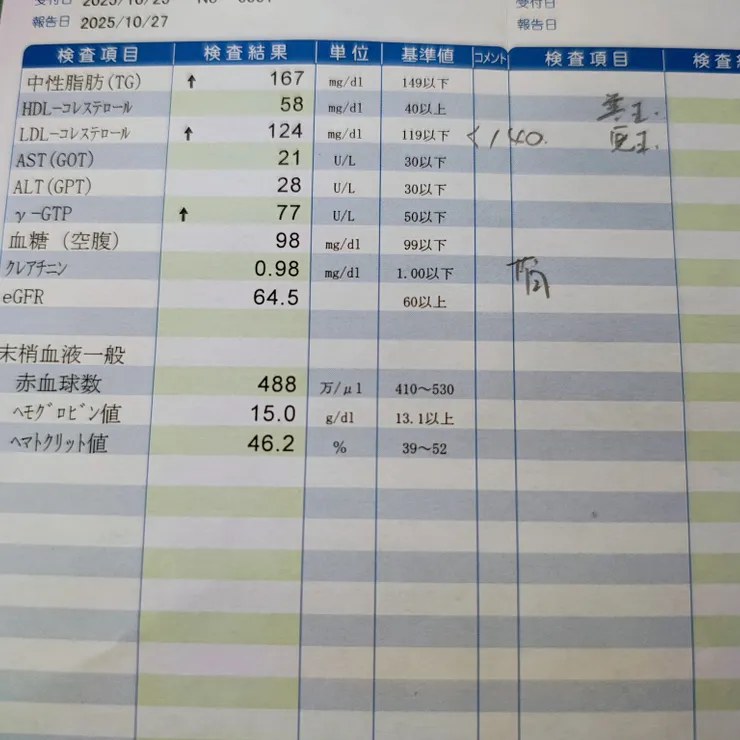 受付日
受付日
報告日 2025/10/27
報告日
検査項目 検査結果 単位 基準値 コメント 検査項目
中性脂肪(TG) ↑ 167 mg/dl 149以下
HDL-コレステロール 58 mg/dl 40以上 善玉.
LDL-コレステロール ↑ 124 mg/dl 119以下 <140. 悪玉.
AST(GOT) 21 U/L 30以下
ALT(GPT) 28 U/L 30以下
γ-GTP ↑ 77 U/L 50以下
血糖 (空腹) 98 mg/dl 99以下
クレアチニン 0.98 mg/dl 1.00以下 腎
eGFR 64.5 60以上
末梢血液一般
赤血球数 488 万/μl 410～530
ヘモグロビン値 15.0 g/dl 13.1以上
ヘマトクリット値 46.2 % 39～52